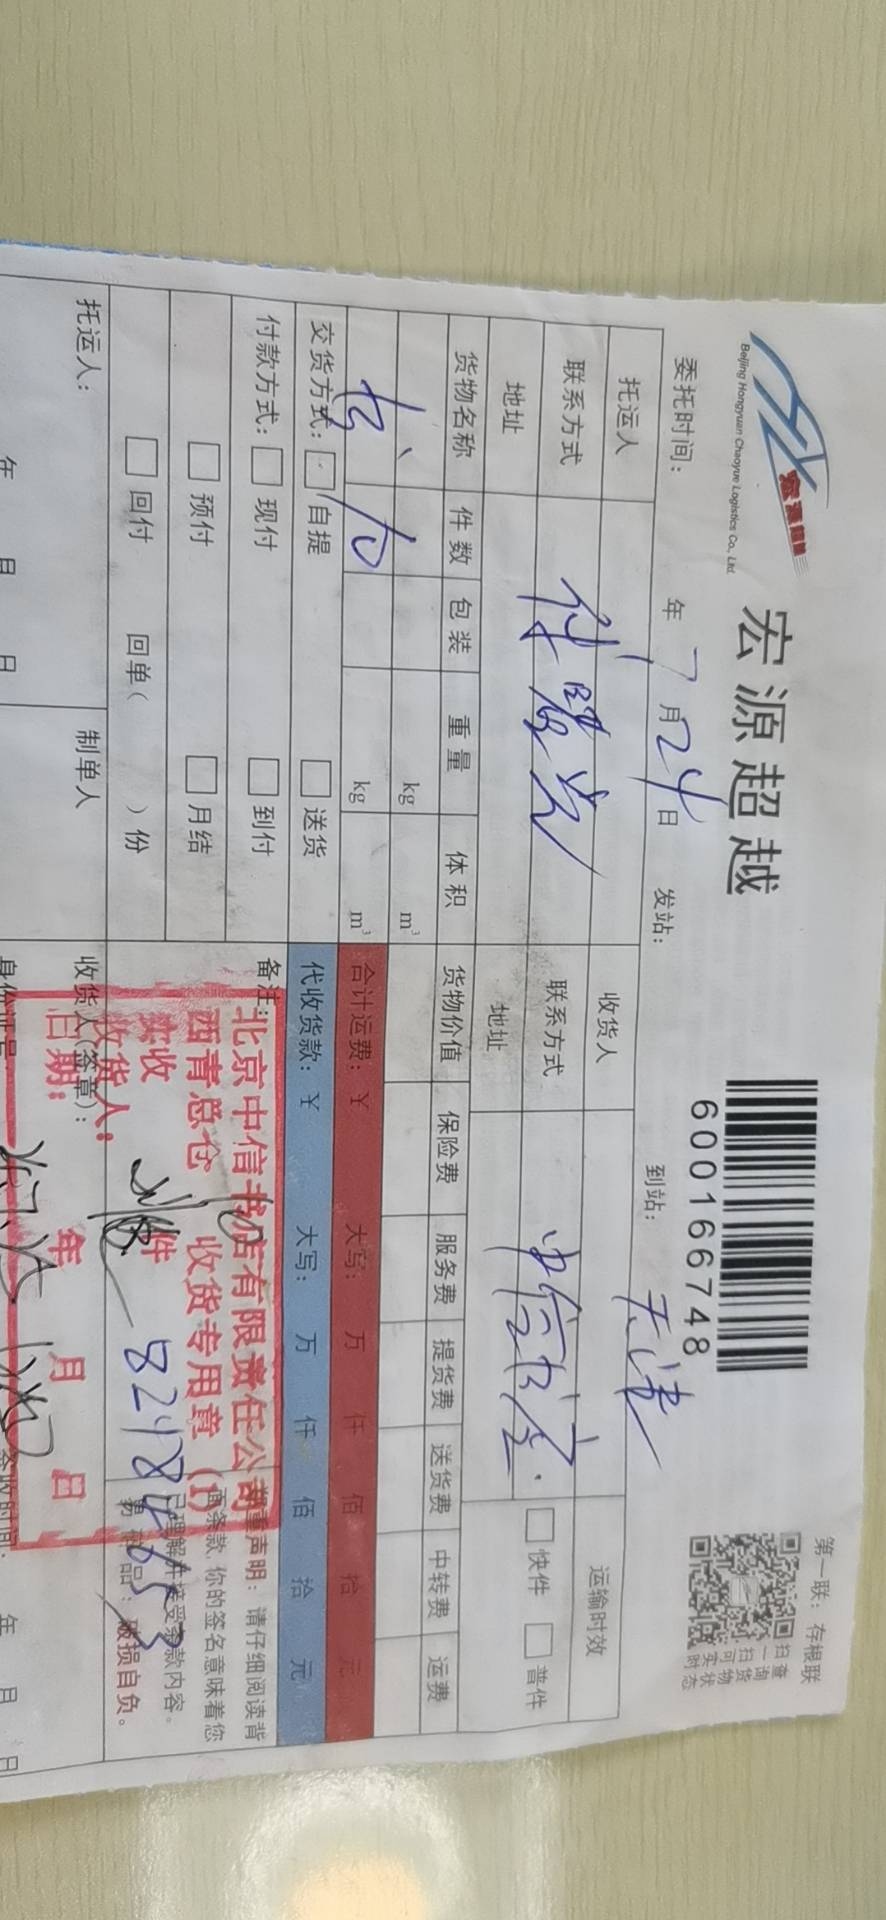 宏源超越
Beijing Hongyuan Chaoyue Logistics Co., Ltd.
宏源超越
600166748
第一联：存根联
扫一扫可实时
查询货物状态
委托时间： 年 7 月 24 日 发站： 到站：天津
托运人 收货人 运输时效
联系方式 联系方式 中信书店 快件 普件
地址 地址
货物名称 件数 包装 重量 体积 货物价值 保险费 服务费 提货费 送货费 中转费 运费
kg m³
kg m³ 合计运费：￥ 大写： 万 仟 佰 拾 元
交货方式： 自提 送货 代收货款：￥ 大写： 万 仟 佰 拾 元
付款方式： 现付 到付 备注：
预付 月结
回付 回单（ ）份
郑重声明：请仔细阅读背
面条款，你的签名意味着您
已理解并接受条款内容。
易碎品：破损自负。
北京中信书店有限责任公司
西青总仓 收货专用章（1）
实收 件
收货人：
日期： 年 月 日
托运人： 制单人 收货人（签章）： 签收时间：
年 月 日 身份证号 年 月 日